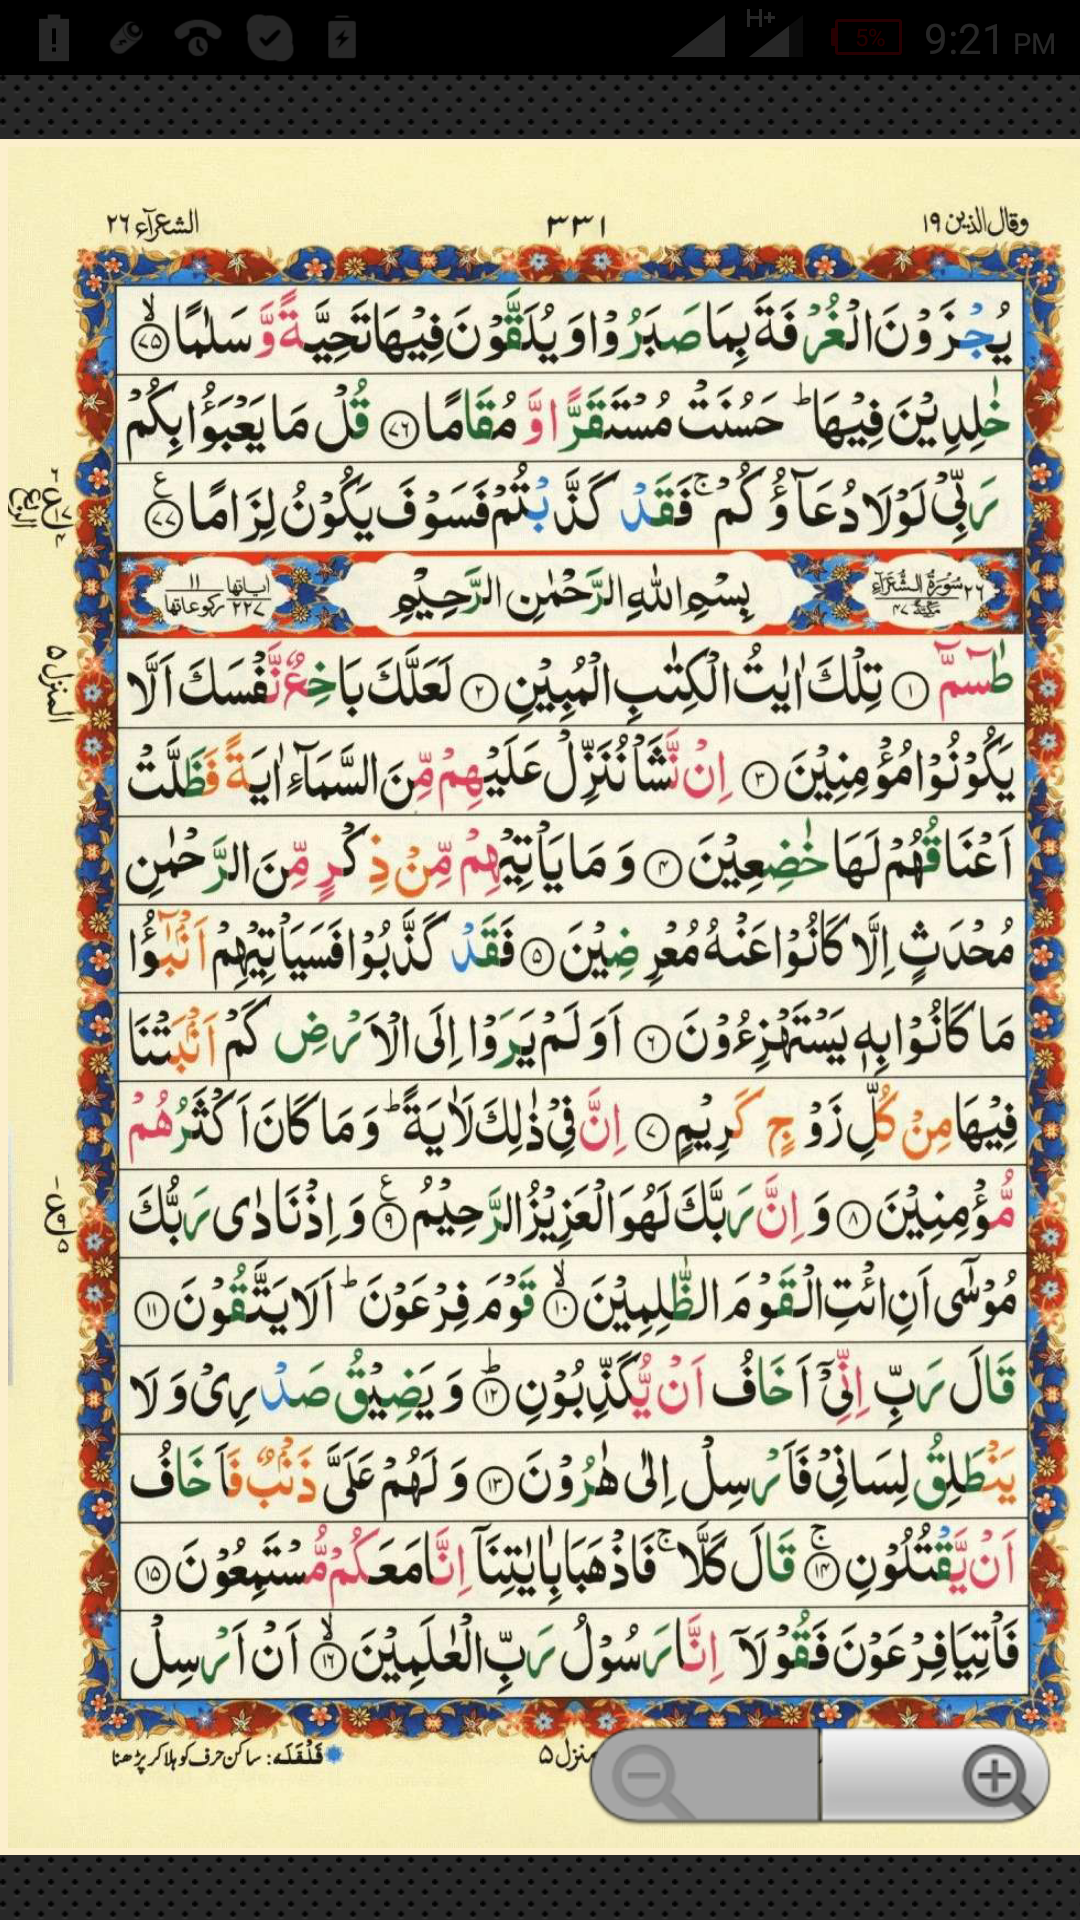 H+
5%
9:21 PM
وقال الذین ١٩
٣٣١
الشعرآء ٢٦
یُجْزَوْنَ الْغُرْفَةَ بِمَا صَبَرُوْا وَ یُلَقَّوْنَ فِیْهَا تَحِیَّةً وَّ سَلٰمًا ٧٥
خٰلِدِیْنَ فِیْهَا ؕ حَسُنَتْ مُسْتَقَرًّا وَّ مُقَامًا ٧٦ قُلْ مَا یَعْبَؤُا بِكُمْ
رَبِّیْ لَوْ لَا دُعَآؤُكُمْ ۚ فَقَدْ كَذَّبْتُمْ فَسَوْفَ یَكُوْنُ لِزَامًا ٧٧
٢٦ سُوْرَةُ الشُّعَرَآءِ مَكِّیَّةٌ ٤٧
بِسْمِ اللّٰهِ الرَّحْمٰنِ الرَّحِیْمِ
اٰیاتها ٢٢٧ ركوعاتها ١١
طٰسٓمّٓ ١ تِلْكَ اٰیٰتُ الْكِتٰبِ الْمُبِیْنِ ٢ لَعَلَّكَ بَاخِعٌ نَّفْسَكَ اَلَّا
یَكُوْنُوْا مُؤْمِنِیْنَ ٣ اِنْ نَّشَاْ نُنَزِّلْ عَلَیْهِمْ مِّنَ السَّمَآءِ اٰیَةً فَظَلَّتْ
اَعْنَاقُهُمْ لَهَا خٰضِعِیْنَ ٤ وَ مَا یَاْتِیْهِمْ مِّنْ ذِكْرٍ مِّنَ الرَّحْمٰنِ
مُحْدَثٍ اِلَّا كَانُوْا عَنْهُ مُعْرِضِیْنَ ٥ فَقَدْ كَذَّبُوْا فَسَیَاْتِیْهِمْ اَنْۢبٰٓؤُا
مَا كَانُوْا بِهٖ یَسْتَهْزِءُوْنَ ٦ اَوَ لَمْ یَرَوْا اِلَی الْاَرْضِ كَمْ اَنْۢبَتْنَا
فِیْهَا مِنْ كُلِّ زَوْجٍ كَرِیْمٍ ٧ اِنَّ فِیْ ذٰلِكَ لَاٰیَةً ؕ وَ مَا كَانَ اَكْثَرُهُمْ
مُّؤْمِنِیْنَ ٨ وَ اِنَّ رَبَّكَ لَهُوَ الْعَزِیْزُ الرَّحِیْمُ ٩ وَ اِذْ نَادٰی رَبُّكَ
مُوْسٰۤی اَنِ ائْتِ الْقَوْمَ الظّٰلِمِیْنَ ١٠ قَوْمَ فِرْعَوْنَ ؕ اَلَا یَتَّقُوْنَ ١١
قَالَ رَبِّ اِنِّیْۤ اَخَافُ اَنْ یُّكَذِّبُوْنِ ١٢ وَ یَضِیْقُ صَدْرِیْ وَ لَا
یَنْطَلِقُ لِسَانِیْ فَاَرْسِلْ اِلٰی هٰرُوْنَ ١٣ وَ لَهُمْ عَلَیَّ ذَنْۢبٌ فَاَخَافُ
اَنْ یَّقْتُلُوْنِ ١٤ قَالَ كَلَّا ۚ فَاذْهَبَا بِاٰیٰتِنَاۤ اِنَّا مَعَكُمْ مُّسْتَمِعُوْنَ ١٥
فَاْتِیَا فِرْعَوْنَ فَقُوْلَاۤ اِنَّا رَسُوْلُ رَبِّ الْعٰلَمِیْنَ ١٦ اَنْ اَرْسِلْ
المنزل ٥
منزل ٥
قَلْقَلَه: ساکن حرف کو ہلا کر پڑھنا